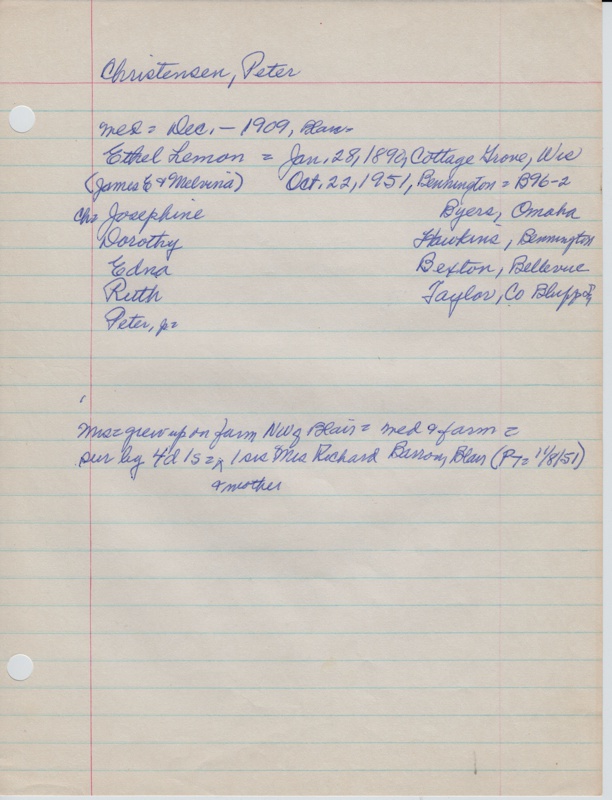 Christensen, Peter
med = Dec. - 1909, Blair -
Ethel Lemon = Jan. 28, 1890, Cottage Grove, Wis
(James E & Melvina) Oct. 22, 1951, Bennington = B96-2
Chr Josephine Byers, Omaha
Dorothy Hawkins, Bennington
Edna Bexton, Bellevue
Ruth Taylor, Co Bluffs
Peter, Jr
Mrs = grew up on farm NW of Blair = med & farm =
sur by 4 d 1 s = 1 sis Mrs Richard Barrow, Blair (PT = 11/8/51)
& mother